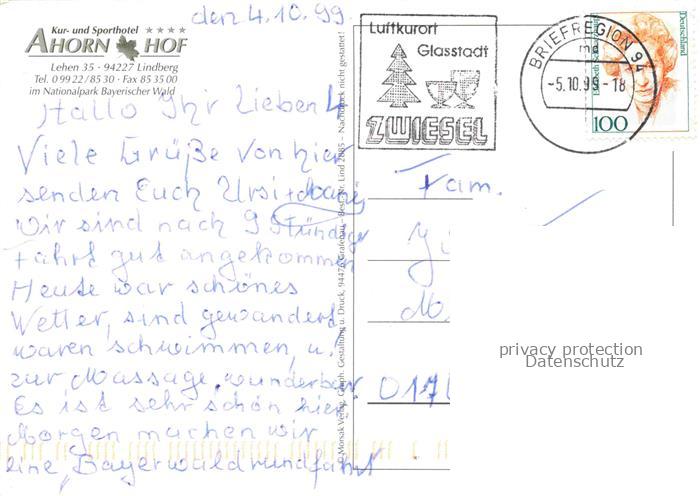 den 4.10.99.
Kur- und Sporthotel ****
AHORN HOF
Lehen 35 · 94227 Lindberg
Tel. 0 99 22 / 85 30 · Fax 85 35 00
im Nationalpark Bayerischer Wald
Hallo Ihr Lieben 4
Viele Grüße von hier
senden Euch Ursi +
Wir sind nach 9 Stündiger
Fahrt gut angekommen
Heute war schönes
Wetter, sind gewandert
waren schwimmen, u.
zur Massage, wunderbar.
Es ist sehr schön hier
Morgen machen wir
eine Bayerwaldrundfahrt
© Monak Verlag, Graph. Gestaltung u. Druck, 94476 Grafenau – Best.-Nr. Lind 2085 – Nachdruck nicht gestattet!
Luftkurort
Glasstadt
ZWIESEL
BRIEFREGION 94
md
-5.10.99-18
Deutschland
100
Fam.
017
privacy protection
Datenschutz